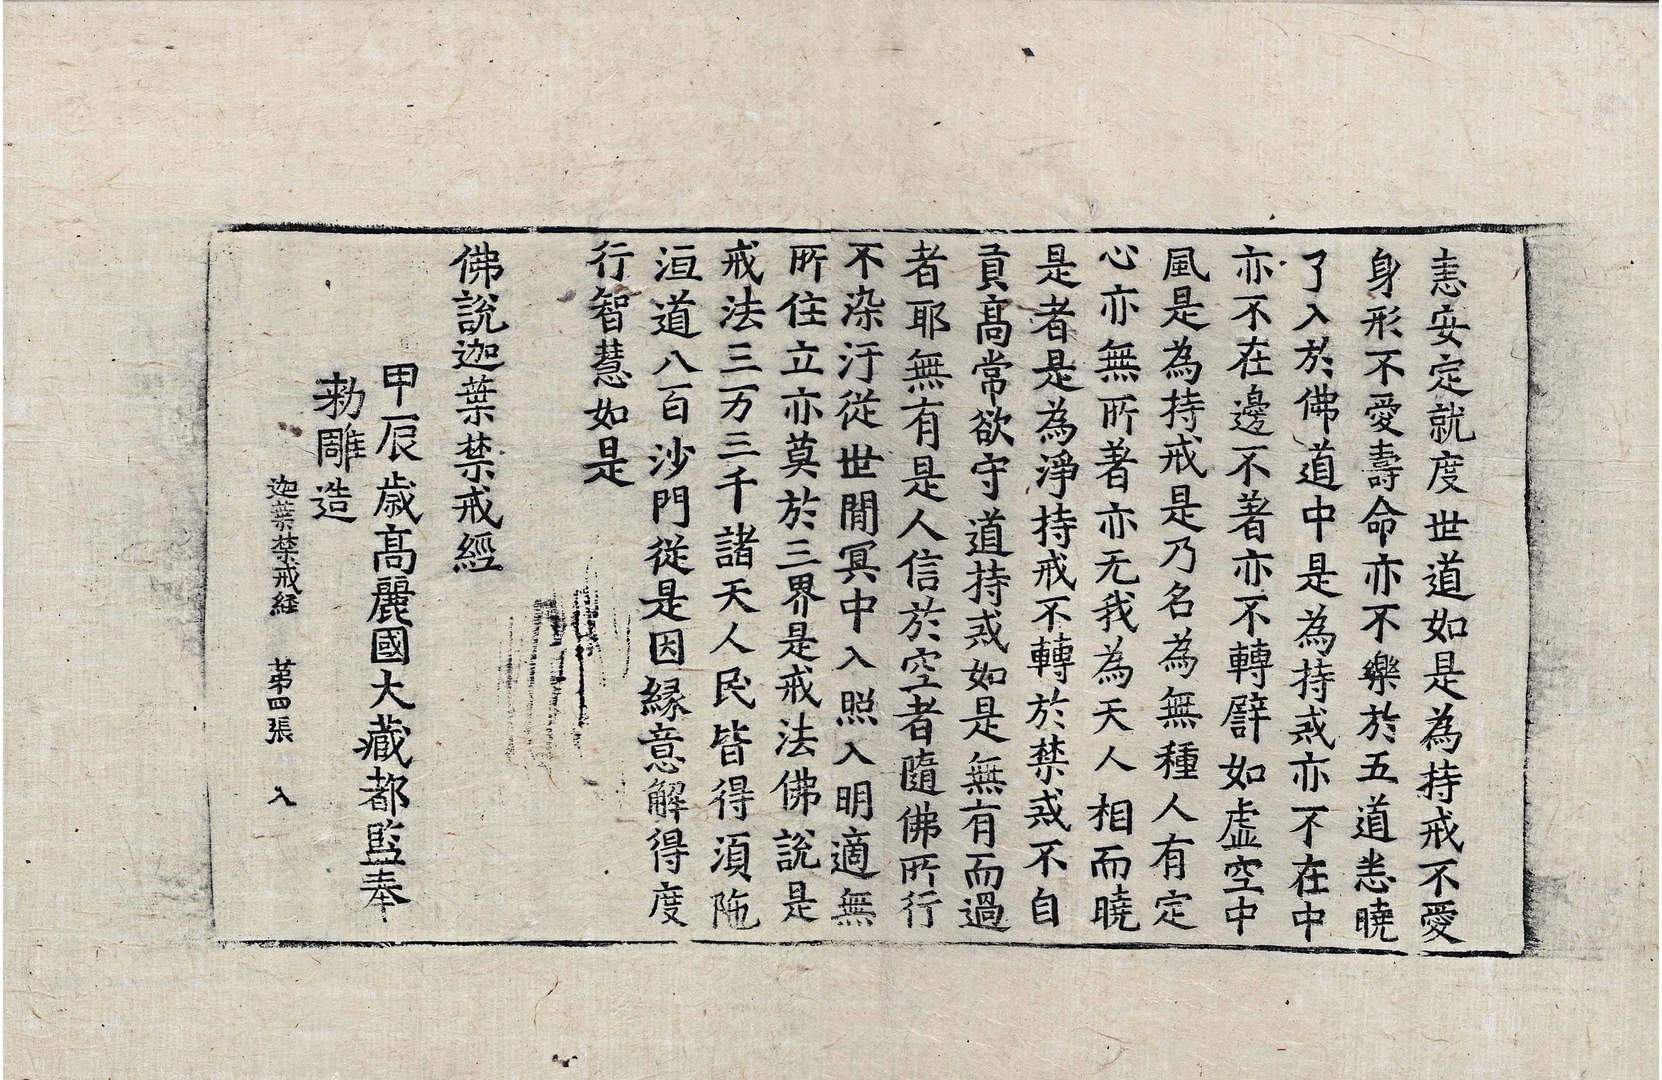 恚安定就度世道如是為持戒不愛
身形不愛壽命亦不樂於五道悉曉
了入於佛道中是為持戒亦不在中
亦不在邊不著亦不轉譬如虛空中
風是為持戒是乃名為無種人有定
心亦無所著亦无我為天人相而曉
是者是為淨持戒不轉於禁戒不自
貢髙常欲守道持戒如是無有而過
者耶無有是人信於空者隨佛所行
不染汙從世閒冥中入照入明適無
所住立亦莫於三界是戒法佛說是
戒法三万三千諸天人民皆得須陁
洹道八百沙門從是因縁意解得度
行智慧如是
佛說迦葉禁戒經
甲辰歳髙麗國大藏都監奉
勅雕造
迦葉禁戒経 苐四張 入